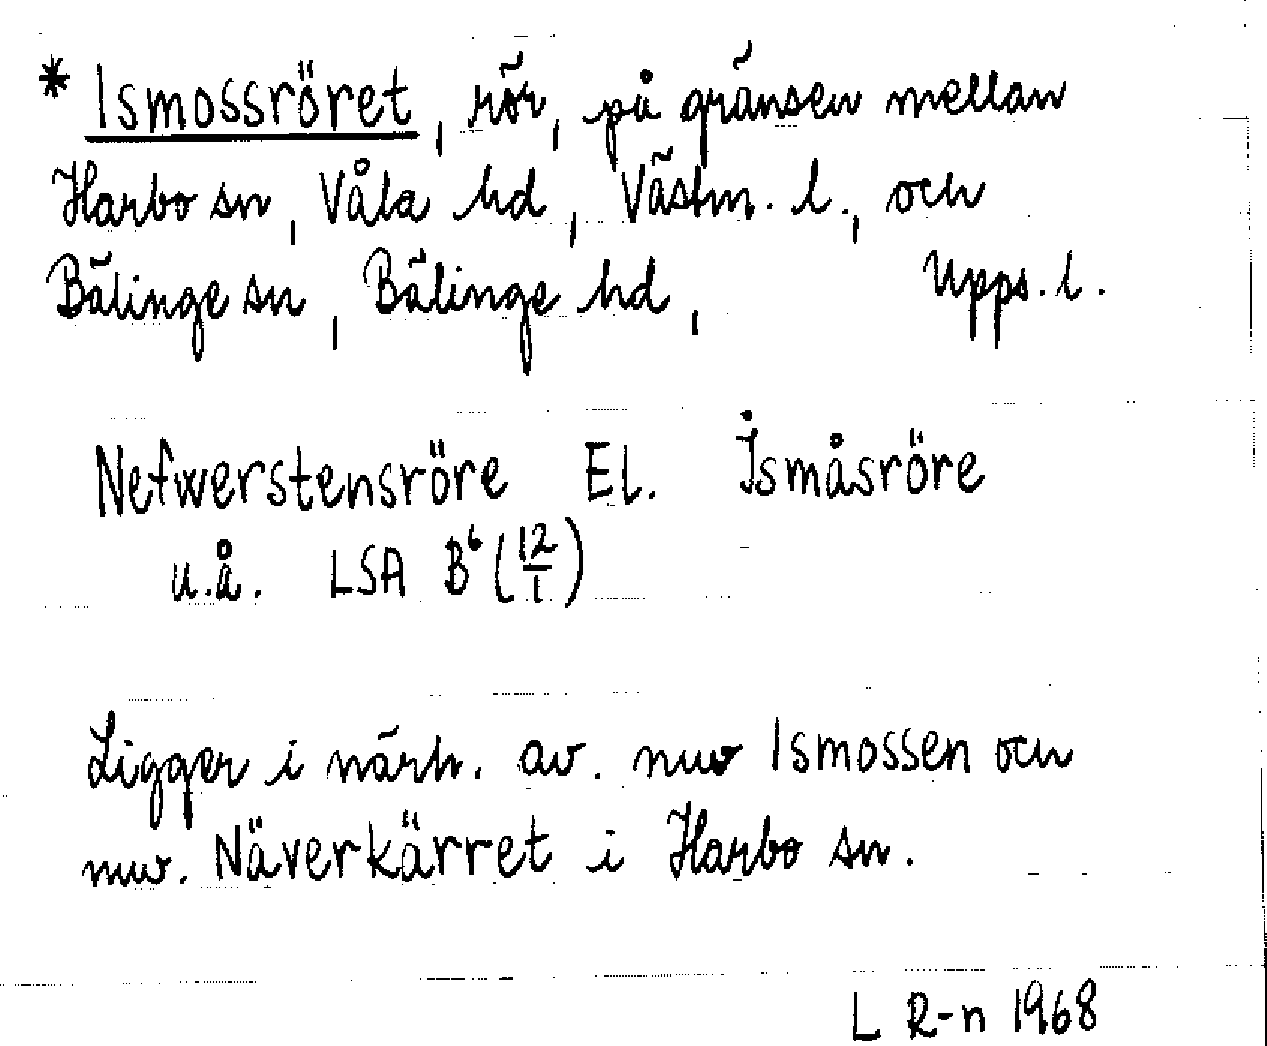 * Ismossröret, rör, på gränsen mellan
Harbo sn, Våla hd, Västm. l., och
Bälinge sn, Bälinge hd, Upps. l.
Nefwerstensröre El. Ismåsröre
u.å. LSA B⁶ (12/1)
Ligger i närh. av. nuv Ismossen och
nuv. Näverkärret i Harbo sn.
L R-n 1968